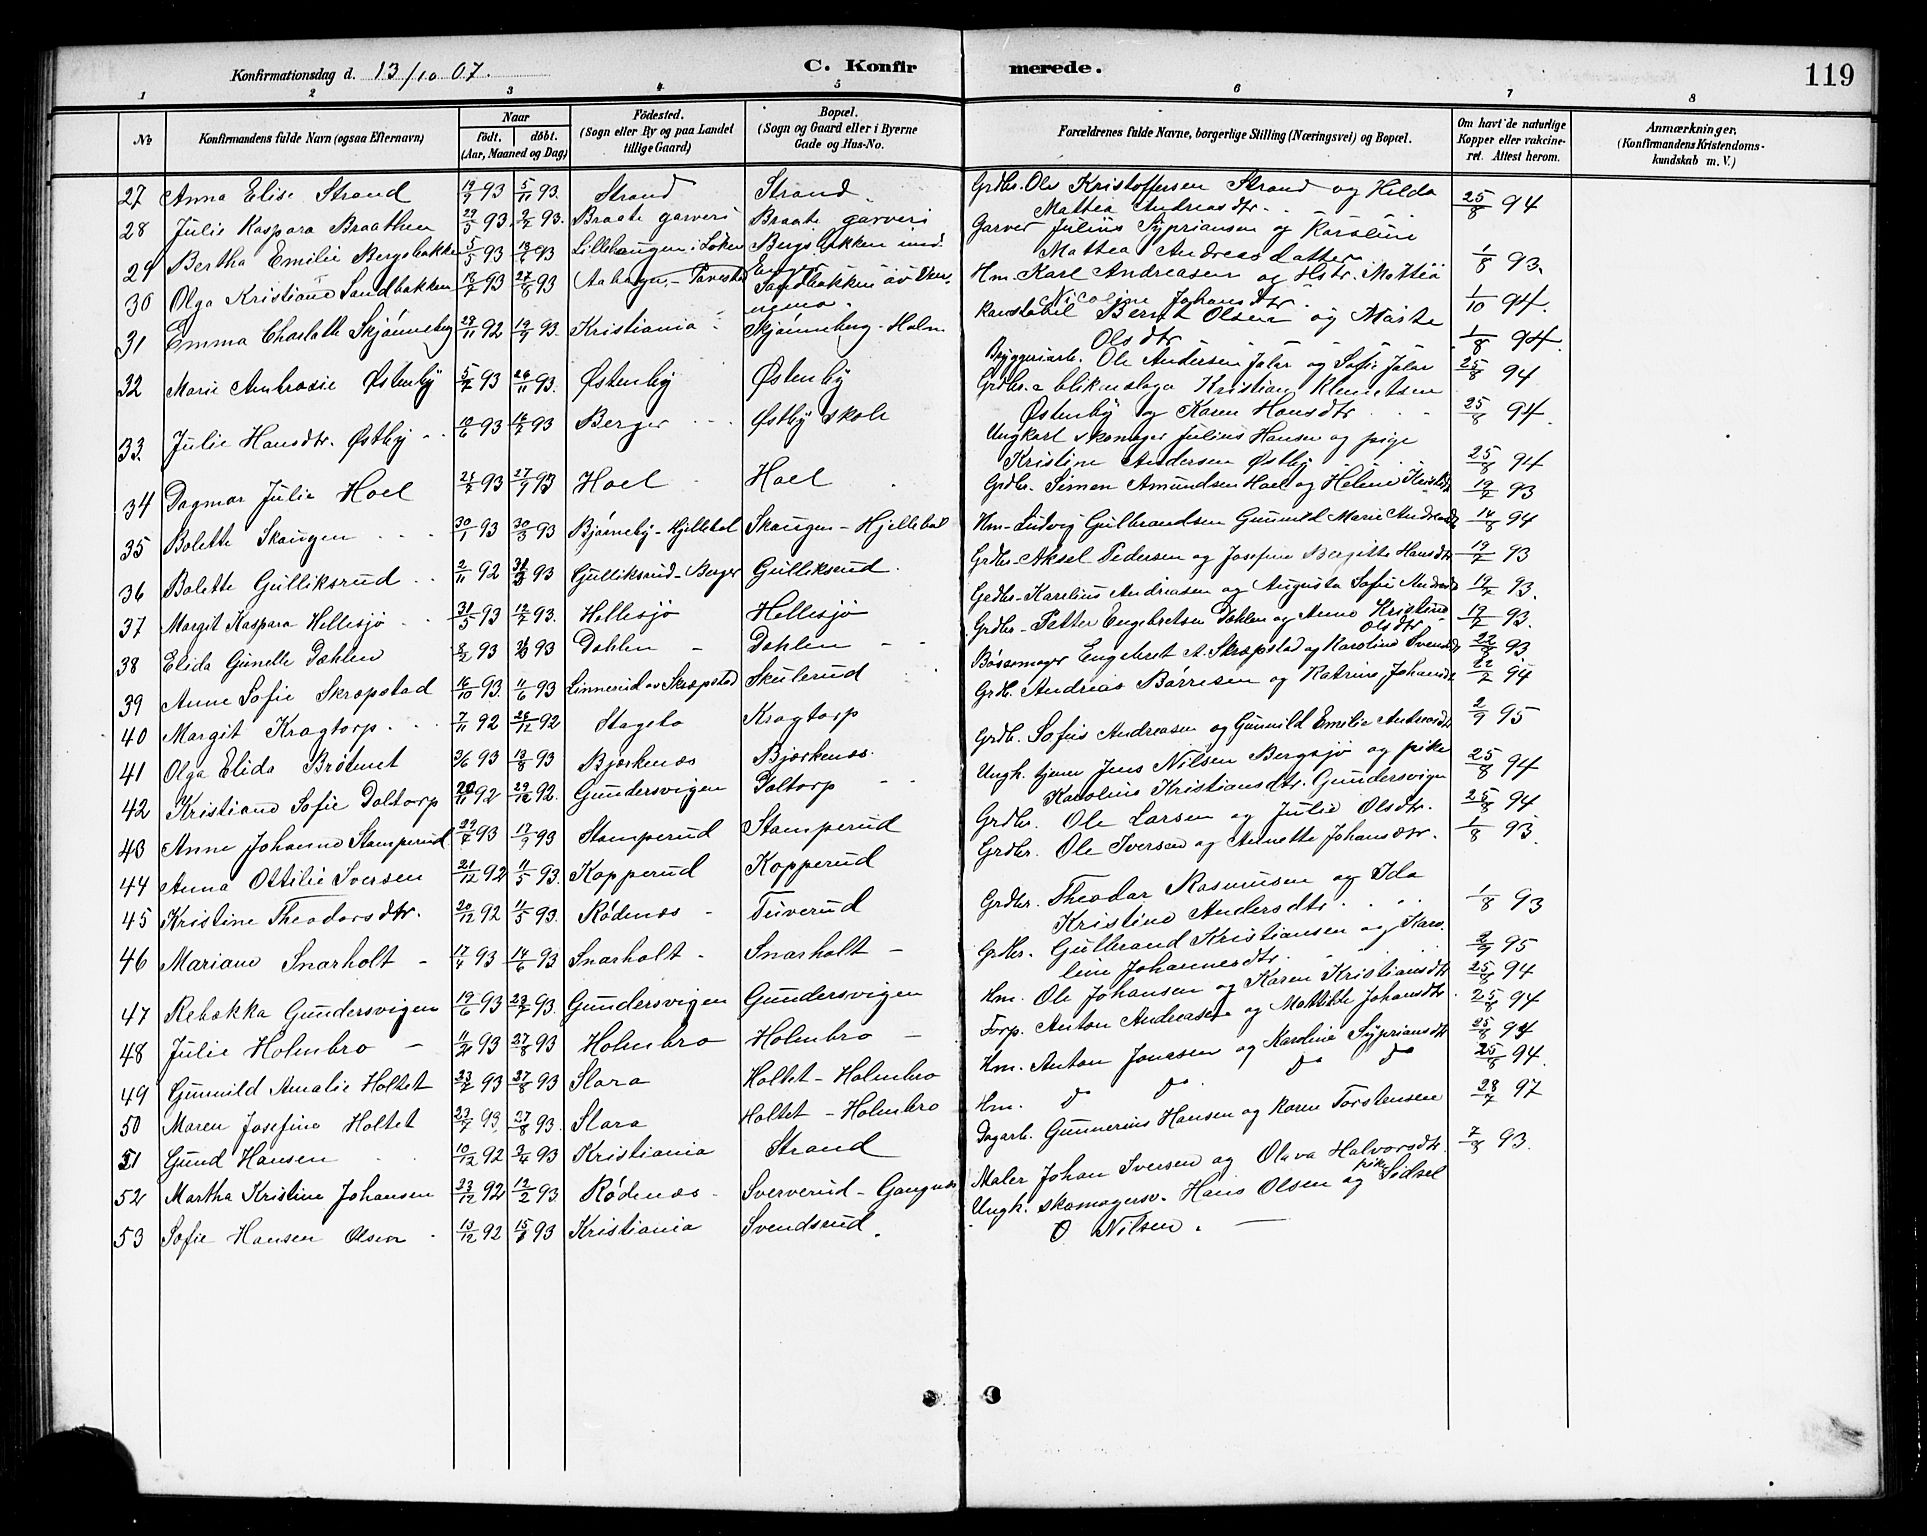 Konfirmationsdag d. 13/10 07. C. Konfirmerede. 119
1 2 3 4 5 6 7 8
No Konfirmandens fulde Navn (ogsaa Efternavn) Naar født. døbt. (Aar, Maaned og Dag) Fødested. (Sogn eller By og paa Landet tillige Gaard) Bopæl. (Sogn og Gaard eller i Byerne Gade og Hus-No. Forældrenes fulde Navne, borgerlige Stilling (Næringsvei) og Bopæl. Om havt de naturlige Kopper eller vakcineret. Attest herom. Anmærkninger. (Konfirmandens Kristendomskundskab m. V.)
27 Anna Elise Strand 19/9 93 5/11 93. Strand Strand. Grdbr. Ole Kristoffersen Strand og Hilda Mattea Andreasdtr. 25/8 94
28 Julie Kaspara Braathen 29/5 93. 2/7 93. Braate garveri Braate garveri Garver Julius Sypriansen og Karoline Mattea Andreasdatter
29 Bertha Emilie Bergsbakken 5/5 93 18/6 93 Lillehaugen i Løken Bergsbakken Hm. Karl Andreasen og Hstr. Mattia Nicoline Johansdtr. 1/8 93.
30 Olga Kristiane Sandbakken 93 27/8 93 Sandbakken av Konstabel Bernt Olsen og Marte Olsdtr 1/10 94.
31 Emma Charlotte Skjønneberg 29/11 92 19/9 93. Kristiania Skjønneberg - Holm Bryggeriarb. Ole Andersen Jalar og Sofie Jalar 1/8 94.
32 Marie Ambrosie Østenby 5/7 93 26/11 93. Østenby Østenby Grdbr. & blikenslager Kristian Klemetsen Østenby og Karen Hansdtr 25/8 94
33. Julie Hansdtr. Østby 93 93 Berger Østby skole Ungkarl skomager Julius Hansen og pige Kristine Andersen Østby 25/8 94.
34 Dagmar Julie Hoel 93 27/9 93 Hoel Hoel Grdbr. Simen Amundsen Hoel og Helene 25/8 94
35 Bolette Skaugen 30/1 93 30/3 93 Bjørneby - Hjellebøl Skaugen - Hjellebøl Hm. Ludvig Gulbrandsen Gunnild Marie 14/8 94
36 Bolette Gulliksrud 2/11 92 93 Gulliksrud - Berger Gulliksrud. Grdbr. Aksel Pedersen og Josefine Bergitte Hansdtr 19/7 93
37 Margit Kaspara Hellesjø 31/5 93 93. Hellesjø Hellesjø Grdbr. Karelius Andreasen og Augusta Sofie 19/7 93.
38 Elida Gunette Dæhlen 8/2 93 93 Dæhlen Dæhlen Grdbr - Petter Engebretsen Dæhlen og Anne Kristine Olsdtr 19/7 93.
39 Anne Sofie Skræpstad 16/10 93. 11/6 93 Linnerud av Skræpstad Skulerud Bøssemager Engebret A. Skræpstad og Karoline 93
40 Margit Kragtorp 7/11 92 26/12 92 Kragtorp Grdb. Andreas Børresen og Katrine Johansdtr 22/7 94
41 Olga Elida Brøtnet 3/6 93 13/8 93 Bjørkenes Bjørkenes. Grdb. Sofus Andreasen og Gunnild Emilie Andreasdtr 2/9 95
42 Kristiane Sofie Daltorp 92 29/12 92. Gundersvigen Daltorp Ungk. tjener Jens Nilsen Bergsjø og pike Karoline Kristiansdtr. Gundersvigen 25/8 94
43 Anne Johanne Stamperud 29/7 93 17/9 93 Stamperud Stamperud Grdbr. Ole Larsen og Julie Olsdtr. 25/8 94
44 Anna Ottilie Iversen 21/12 92 11/5 93. Kopperud Kopperud Grdbr. Ole Iversen og Annette Johansdtr. 1/8 93.
45 Kristine Theodorsdtr. 20/12 92 11/5 93. Rødenæs Tuverud Grdbr. Theodor Rasmussen og Ida Kristine Andersdtr 1/8 93
46 Mariane Snarholt 17/4 93 14/6 93 Snarholt Snarholt Grdbr. Gulbrand Kristiansen og Karoline Johannesdtr. 2/9 95
47 Rebækka Gundersvigen 19/6 93 93. Gundersvigen Gundersvigen Hm. Ole Johansen og Karen Kristiansdtr 25/8 94
48 Julie Holmbro 93 27/8 93 Holmbro Holmbro Torp. Anton Andreasen og Mattilde Johansdtr. 25/8 94
49 Gunnild Amalie Holtet 23/2 93 27/8 93 Slora Holtet - Holmbro Hm. Anton Jonassen og Karoline Sypriansdtr 25/8 94
50 Maren Josefine Holtet 93 27/8 93. Slora Holtet - Holmbro Hm. do do do do 25/8 94.
51 Gund Hansen 10/12 92 2/4 93 Kristiania Strand Dagarb. Gunnerius Hansen og Karen Torstensen 28/7 97
52 Martha Kristine Johansen 23/12 92 12/2 93. Rødenæs Sververud - Gangnæs Maler Johan Iversen og Olava Halvorsdtr. 7/8 93.
53 Sofie Hansen Olsen 13/12 92 93 Kristiania Svendsrud. Ungk. skomagersv. Hans Olsen og pike Sidsel O Nilsen.